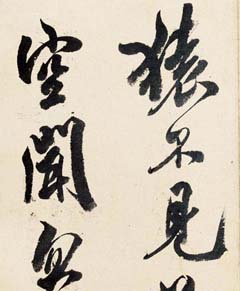 猿不見
空聞